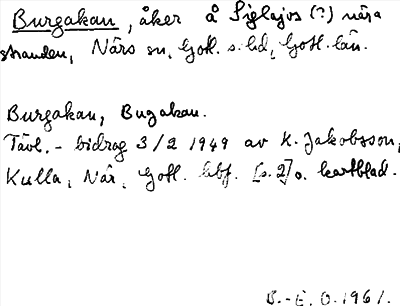 Burgakan, åker å Siglajvs (?) nära
stranden, Närs sn, Gotl. s. hd, Gotl. län.
Burgakan, Bugakan.
Tävl.-bidrag 3/2 1949 av K. Jakobsson,
Kulla, När, Gotl. hbf. [s. 2] o. kartblad.
B.-E. O. 1961.